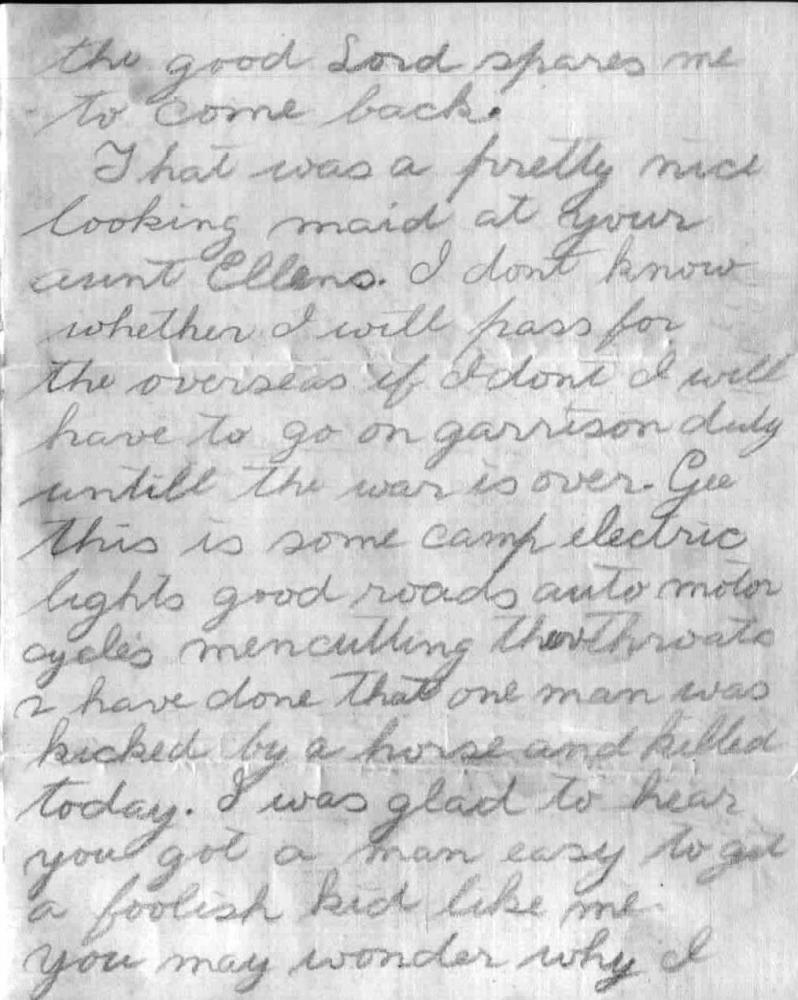 the good Lord spares me
to come back.
That was a pretty nice
looking maid at your
aunt Ellens. I dont know
whether I will pass for
the overseas if I dont I will
have to go on garrison duty
untill the war is over. Gee
this is some camp electric
lights good roads auto motor
cycles men cutting throats
2 have done that one man was
kicked by a horse and killed
today. I was glad to hear
you got a man easy to get
a foolish kid like me.
you may wonder why I